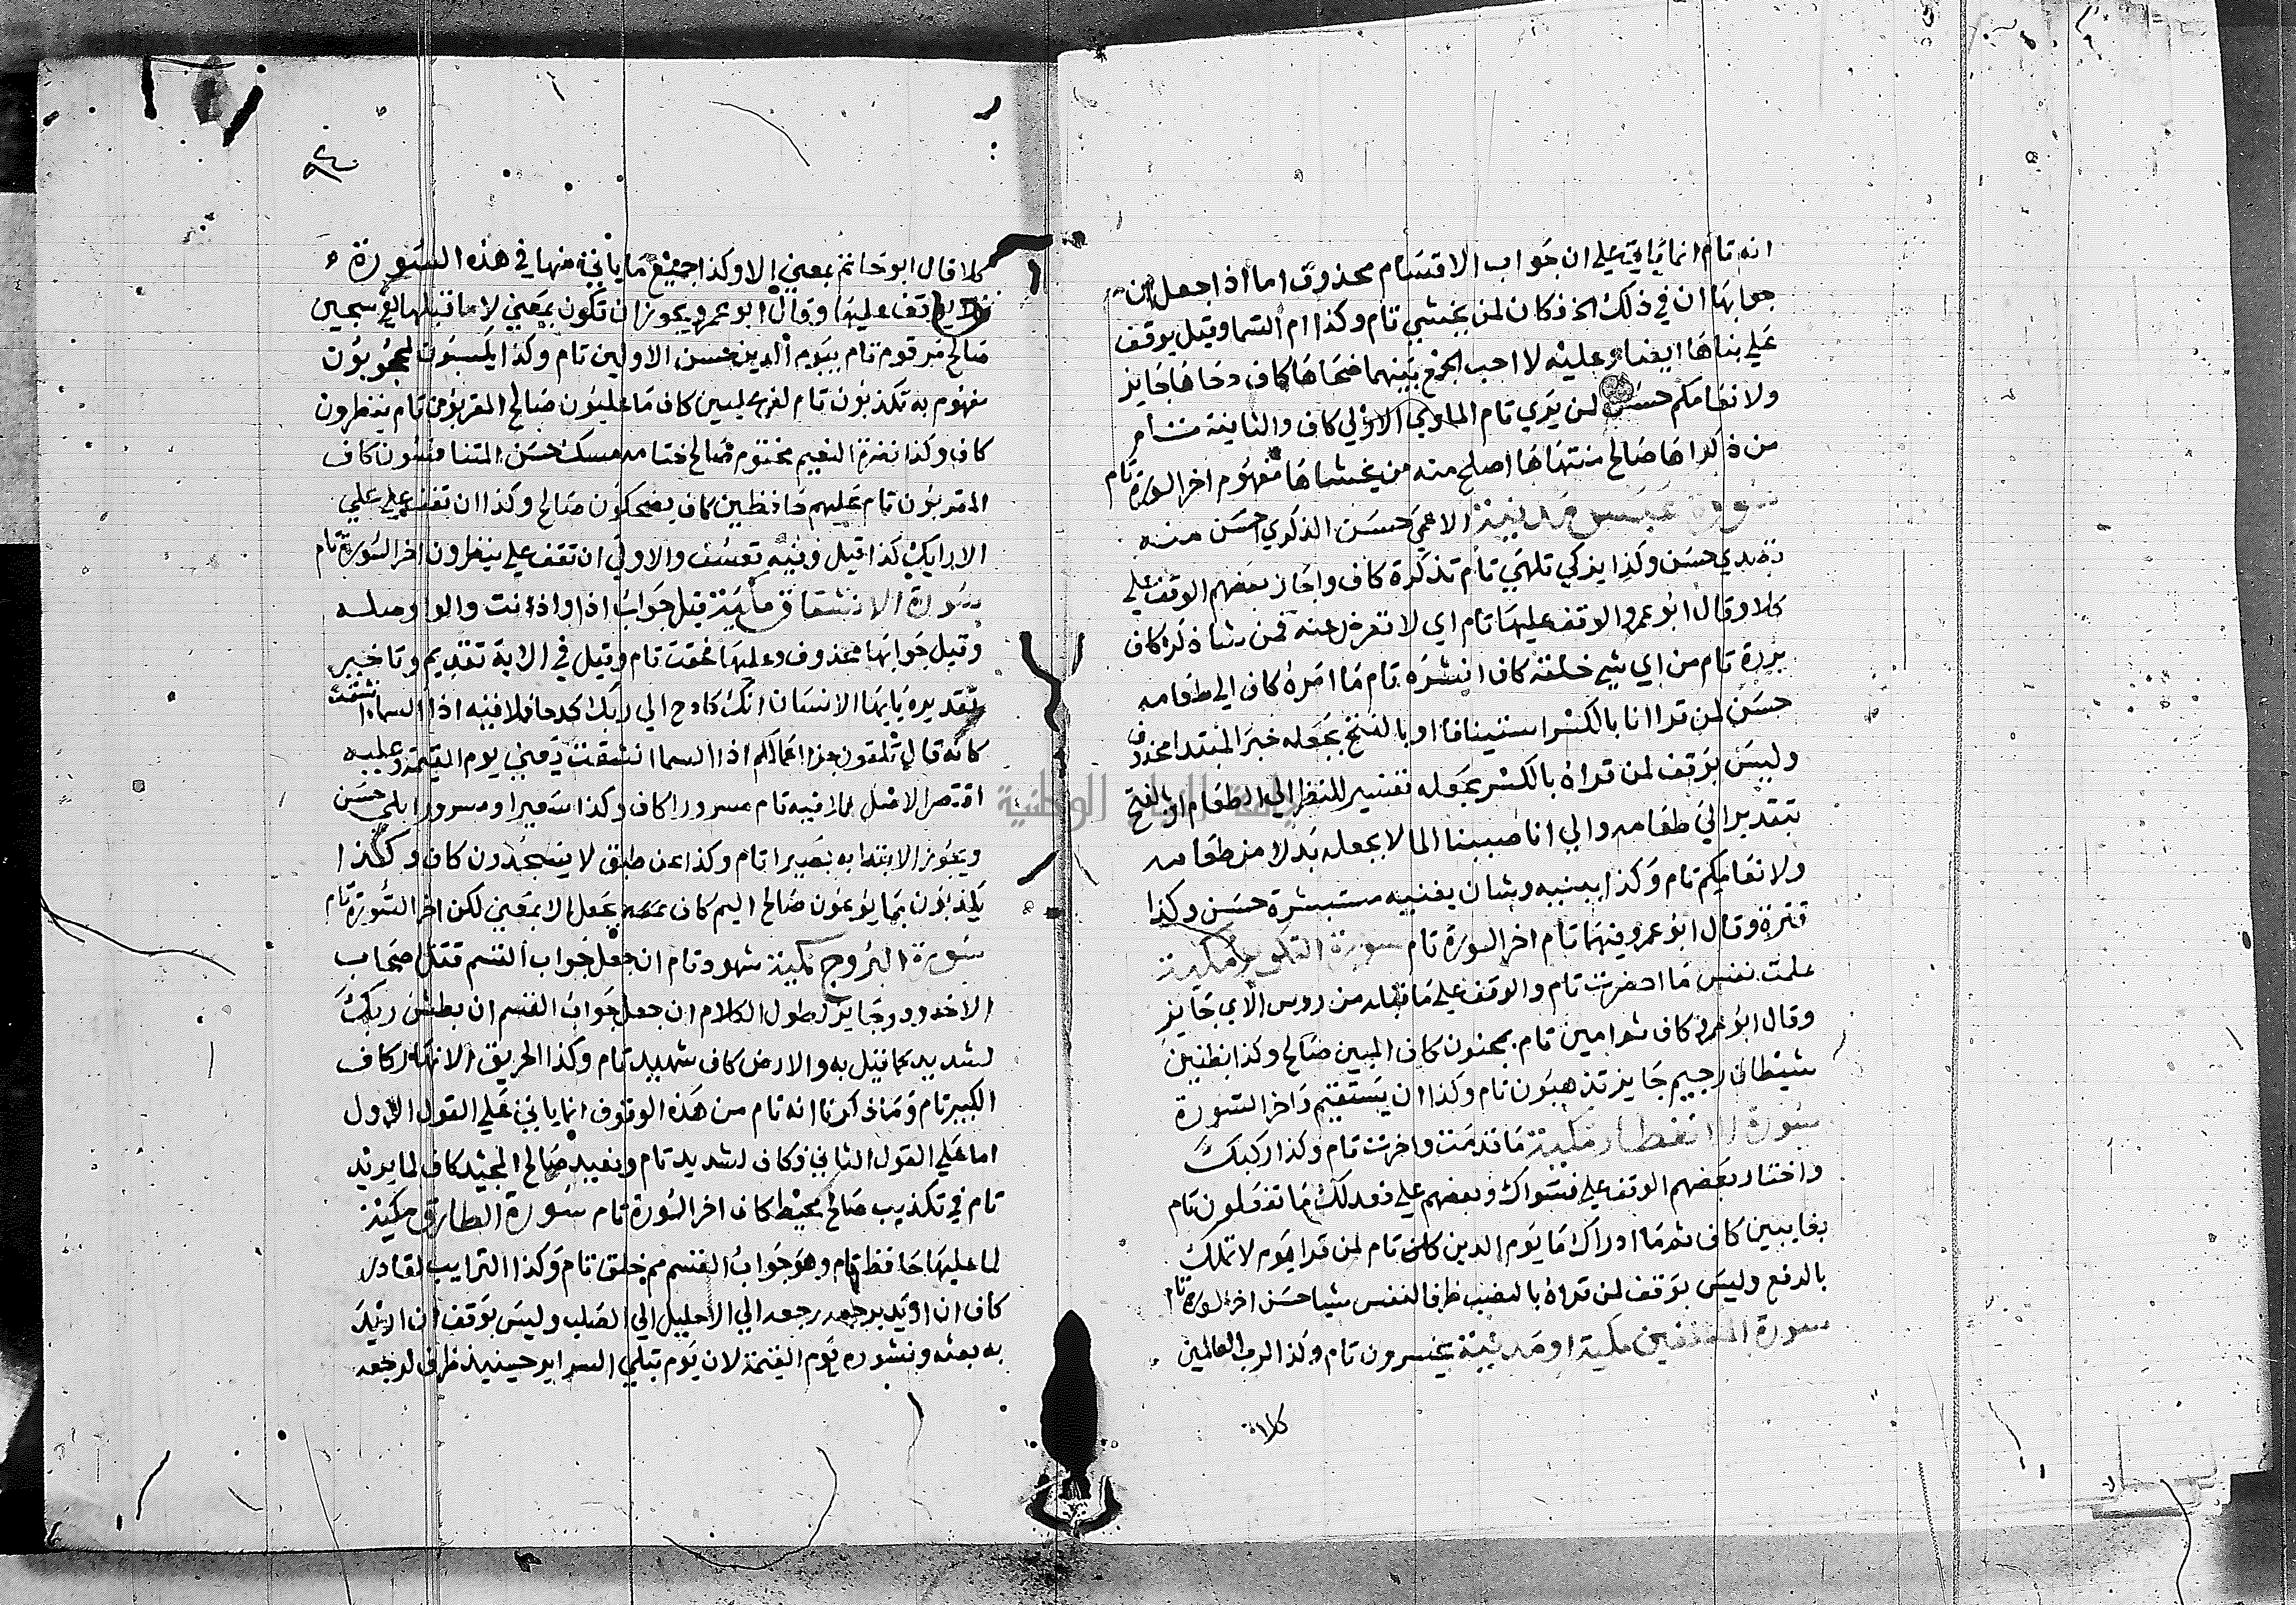 انه تام انما ياتي علي ان جواب الاقسام محذوف اما اذا جعل من
جوابها ان في ذلك الخ فكان لمن يخشي تام وكذا ام السما وقيل يوقف
علي بناها ايضا وعليه لا احب الجمع بينهما ضحاها كاف دحاها جايز
ولانعامكم حسن لمن يري تام الماوي الاولي كاف والثانية تام
من ذكراها صالح منتهاها اصلح منه من يخشاها مفهوم اخر السورة تام
سورة عبس مدنية الاعمي حسن الذكري احسن منه
تصدي حسن وكذا يزكي تلهي تام تذكرة كاف واجاز بعضهم الوقف علي
كلا وقال ابو عمرو الوقف عليها تام اي لا تعرض عنه فمن شا ذكره كاف
بررة تام من اي شي خلقه كاف انشره تام ما امره كاف الي طعامه
حسن لمن قرا انا بالكسر استينافا او بالفتح بجعله خبر المبتدا محذوف
وليس بوقف لمن قراه بالكسر بجعله تفسير للنظر الي الطعام او بالفتح
بتقدير الي طعامه والي انا صببنا الما لا بجعله بدلا من طعامه
ولانعامكم تام وكذا ببنيه وشان يغنيه مستبشرة حسن وكذا
قترة وقال ابو عمرو فيهما تام اخر السورة تام سورة التكوير مكية
علمت نفس ما احضرت تام والوقف علي ما قبله من روس الاي جايز
وقال ابو عمرو كاف ثم امين تام بمجنون كاف المبين صالح وكذا بظنين
شيطان رجيم جايز تذهبون تام وكذا ان يستقيم واخر السورة
سورة الانفطار مكية ما قدمت واخرت تام وكذا ركبك
واختار بعضهم الوقف علي فسواك وبعضهم علي فعدلك ما تفعلون تام
بغايبين كاف ثم ما ادراك ما يوم الدين كاف تام لمن قرا يوم لا تملك
بالرفع وليس بوقف لمن قراه بالنصب ظرفا لنفس شيا حسن اخر السورة تام
سورة المطففين مكية او مدنية يخسرون تام وكذا لرب العالمين
كلا
كلا قال ابو حاتم بمعني الا وكذا جميع ما ياتي منها في هذه السورة
فلا يوقف عليها وقال ابو عمرو يجوز ان تكون بمعني لا ما قبلها لفي سجين
صالح مرقوم تام بيوم الدين حسن الاولين تام وكذا يكسبون لمحجوبون
مفهوم به تكذبون تام لفي عليين كاف ما عليون صالح المقربون تام ينظرون
كاف وكذا نضرة النعيم مختوم صالح ختامه مسك حسن المتنافسون كاف
المقربون تام عليهم حافظين كاف يضحكون صالح وكذا ان تقف علي علي
الارايك كذا قيل وفيه تعسف والاولي ان تقف علي ينظرون اخر السورة تام
سورة الانشقاق مكية قيل جواب اذا واذنت والواو صلة
وقيل جوابها محذوف وعليها فحقت تام وقيل في الاية تقديم وتاخير
تقديره يايها الانسان انك كادح الي ربك كدحا فملاقيه اذا السماء انشقت
كانه قال تلقون جزا اعمالكم اذا السما انشقت يعني يوم القيمة وعليه
اقتصر الاصل فملاقيه تام مسرورا كاف وكذا سعيرا ومسرورا بلي حسن
ويجوز الابتدا به بصيرا تام وكذا عن طبق لا يسجدون كاف وكذا
يكذبون بما يوعون صالح اليم كاف بجعل الا بمعني لكن اخر السورة تام
سورة البروج مكية شهود تام ان جعل جواب القسم قتل اصحاب
الاخدود وجايز لطول الكلام ان جعل جواب القسم ان بطش ربك
لشديد كما قيل به والارض كاف شهيد تام وكذا الحريق الانهار كاف
الكبير تام وما ذكرنا انه تام من هذه الوقوف انما ياتي علي القول الاول
اما علي القول الثاني فكاف لشديد تام ويعيد صالح المجيد كاف لما يريد
تام في تكذيب صالح محيط كاف اخر السورة تام سورة الطارق مكية
لما عليها حافظ تام وهو جواب القسم مم خلق تام وكذا الترايب لقادر
كاف ان اريد برجعه رجعه الي الاحليل الي الصلب وليس بوقف ان اريد
به بعثه ونشوره يوم القيمة لان يوم تبلي السراير حينيذ ظرف لرجعه